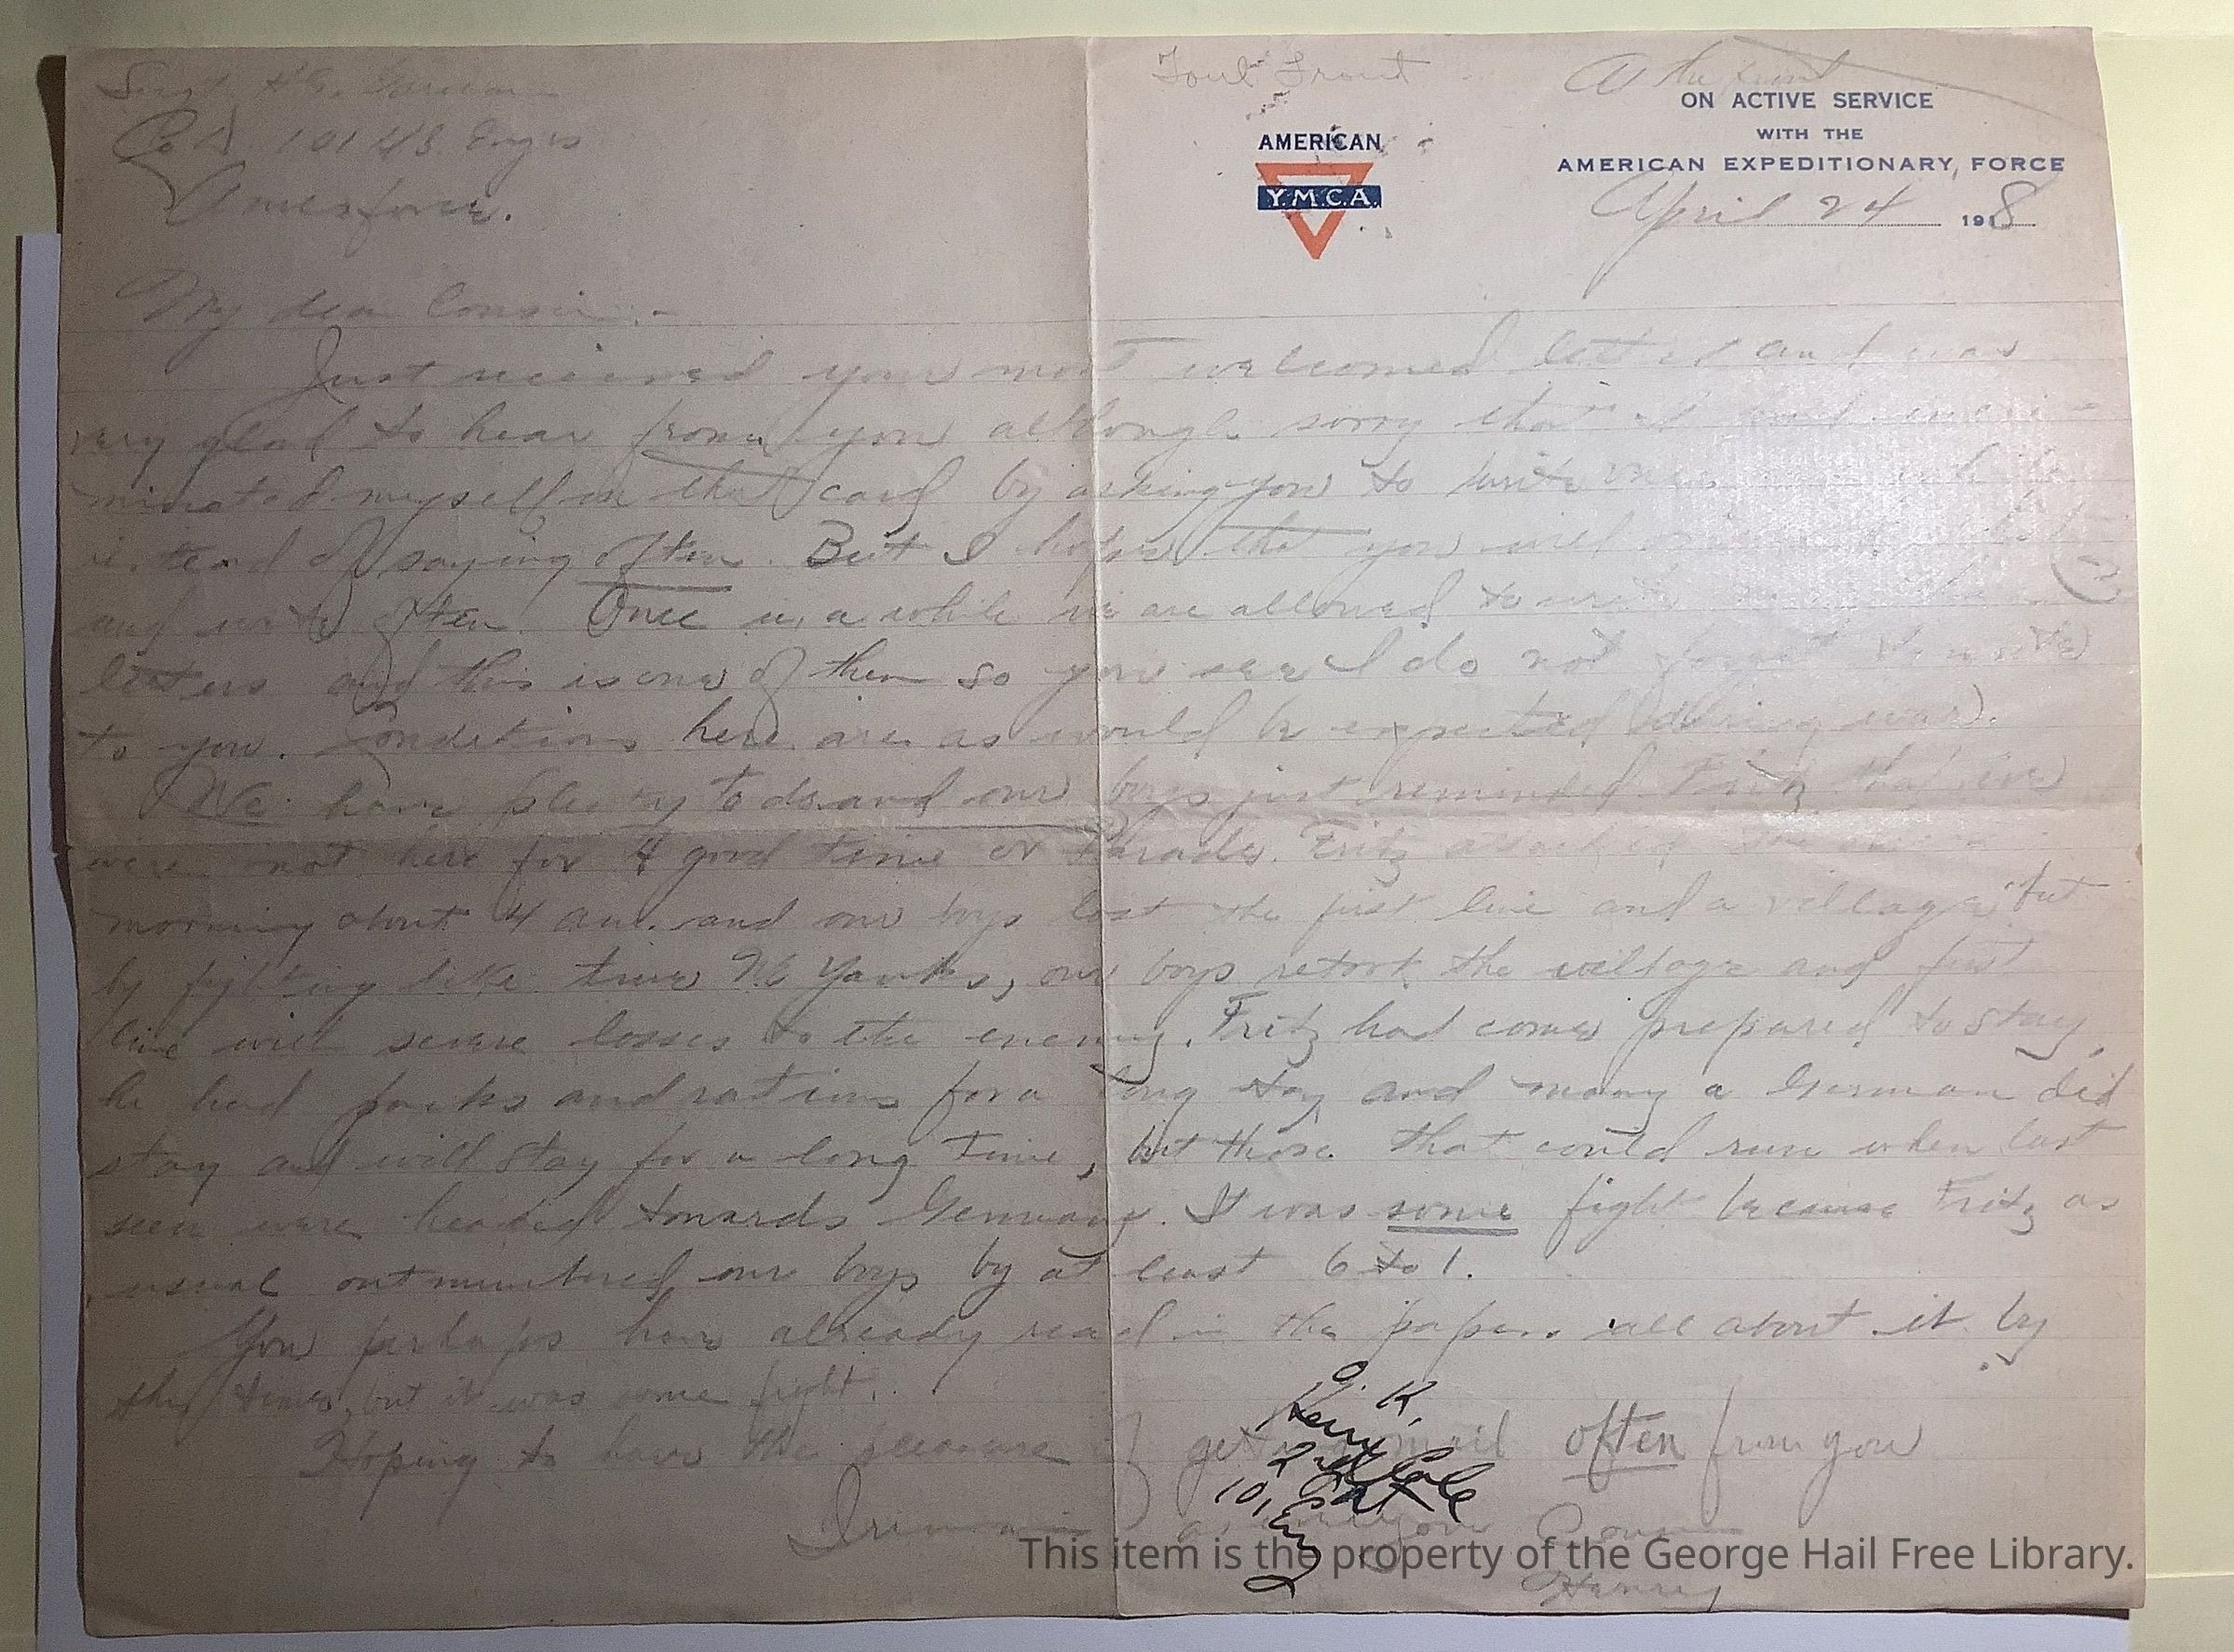 Toul Front
At the front
Sergt. H. G.
Co A 101 US. Engrs
Amexforce.
AMERICAN
Y.M.C.A.
ON ACTIVE SERVICE
WITH THE
AMERICAN EXPEDITIONARY FORCE
April 24 1918
My dear Cousin:-
Just received your most welcomed letter and was
very glad to hear from you although sorry that I had incri-
minated myself in that card by asking you to write once in a while
instead of saying often. But I hope that you will
and write often. Once in a while we are allowed to write
letters and this is one of them so you see I do not forget to write
to you. Conditions here are as would be expected (during war).
We have plenty to do and our boys just reminded Fritz that we
were not here for a good time or Parades. Fritz attacked
morning about 4 am. and our boys lost the first line and a village but
by fighting like true N.E Yanks, our boys retook the village and first
line with severe losses to the enemy. Fritz had come prepared to stay,
he had packs and rations for a long stay and many a German did
stay and will stay for a long time, but those that could run when last
seen were headed towards Germany. It was some fight because Fritz as
usual outnumbered our boys by at least 6 to 1.
You perhaps have already read in the papers all about it by
this time, but it was some fight.
Hoping to have the pleasure of getting mail often from you
I remain as ever your Cousin
Henry
O.K.
2nd Lt
101 Eng
This item is the property of the George Hail Free Library.